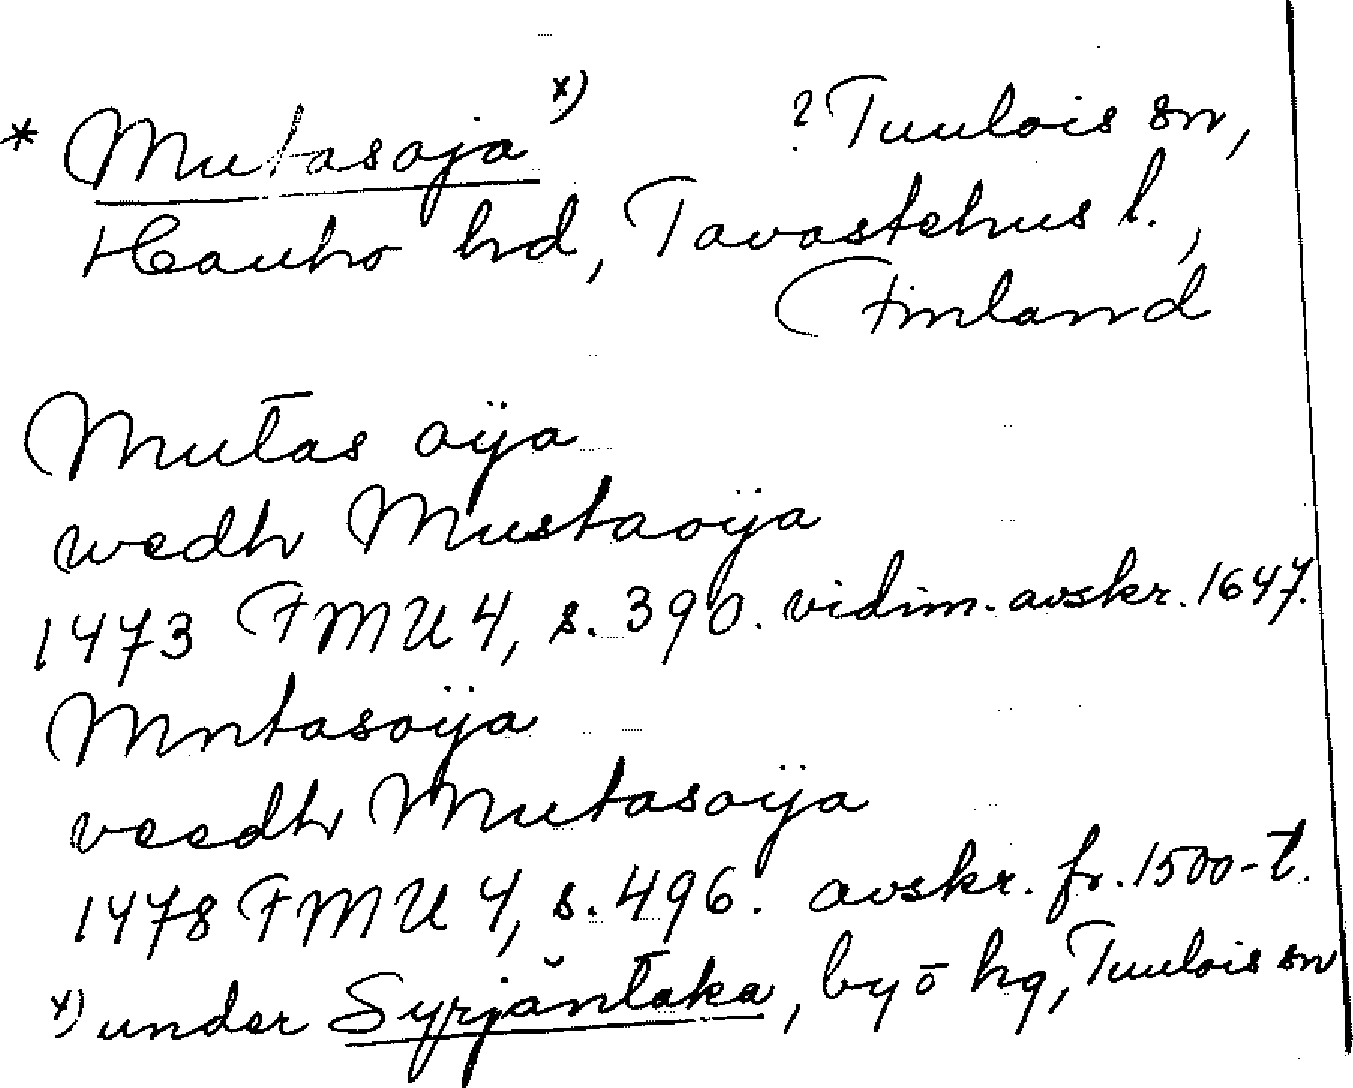 * Mutasoja x) ? Tuulois sn,
Hauho hd, Tavastehus l.,
Finland
Mutas oÿa
wedh Mustaoÿa
1473 FMU 4, s. 390. vidim. avskr. 1647.
Mntasoÿa
veedh Mutasoÿa
1478 FMU 4, s. 496. avskr. fr. 1500-t.
x) under Syrjäntaka, by o hg, Tuulois sn